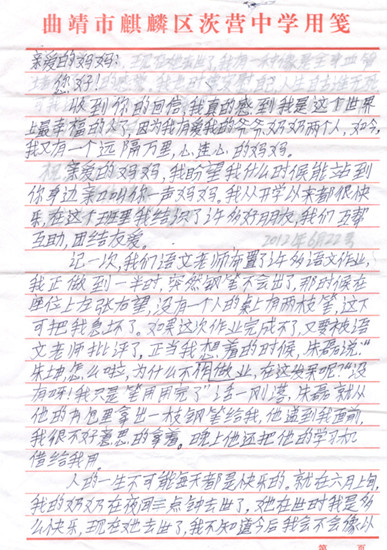 曲靖市麒麟区茨营中学用笺
亲爱的妈妈:
您好!
收到你的回信,我真的感到我是这个世界
上最幸福的人了,因为我有爱我的爷爷奶奶两个人,如今,
我又有一个远隔万里,心连心的妈妈。
亲爱的妈妈,我盼望我什么的时候能站到
你身边亲口叫你一声妈妈。我从开学以来都很快
乐,在这个班里我结识了许多好朋友,我们互帮
互助,团结友爱。
2012年6月22号
记一次,我们语文老师布置了许多语文作业,
我正做到一半时,突然钢笔不会出了,那时候在
座位上左张右望,没有一个人的桌上有两枝笔,这下
可把我急坏了。如果这次作业完成不了,又要被语
文老师批评了,正当我想着的时候,朱磊说:“
朱坤,怎么啦,为什么不做作业,在这发呆呢?”“没
有呀!我只是笔用用完了”话一刚落,朱磊就从
他的书包里拿出一枝钢笔给我,他递到我面前,
我很不好意思的拿着。晚上他还把他的学习机
借给我用。
人的一生不可能每天都是快乐的。就在六月上旬,
我的奶奶在夜间三点钟去世了,她在世时我是多
么快乐,现在她去世了,我不知道今后我会不会像以
第 页